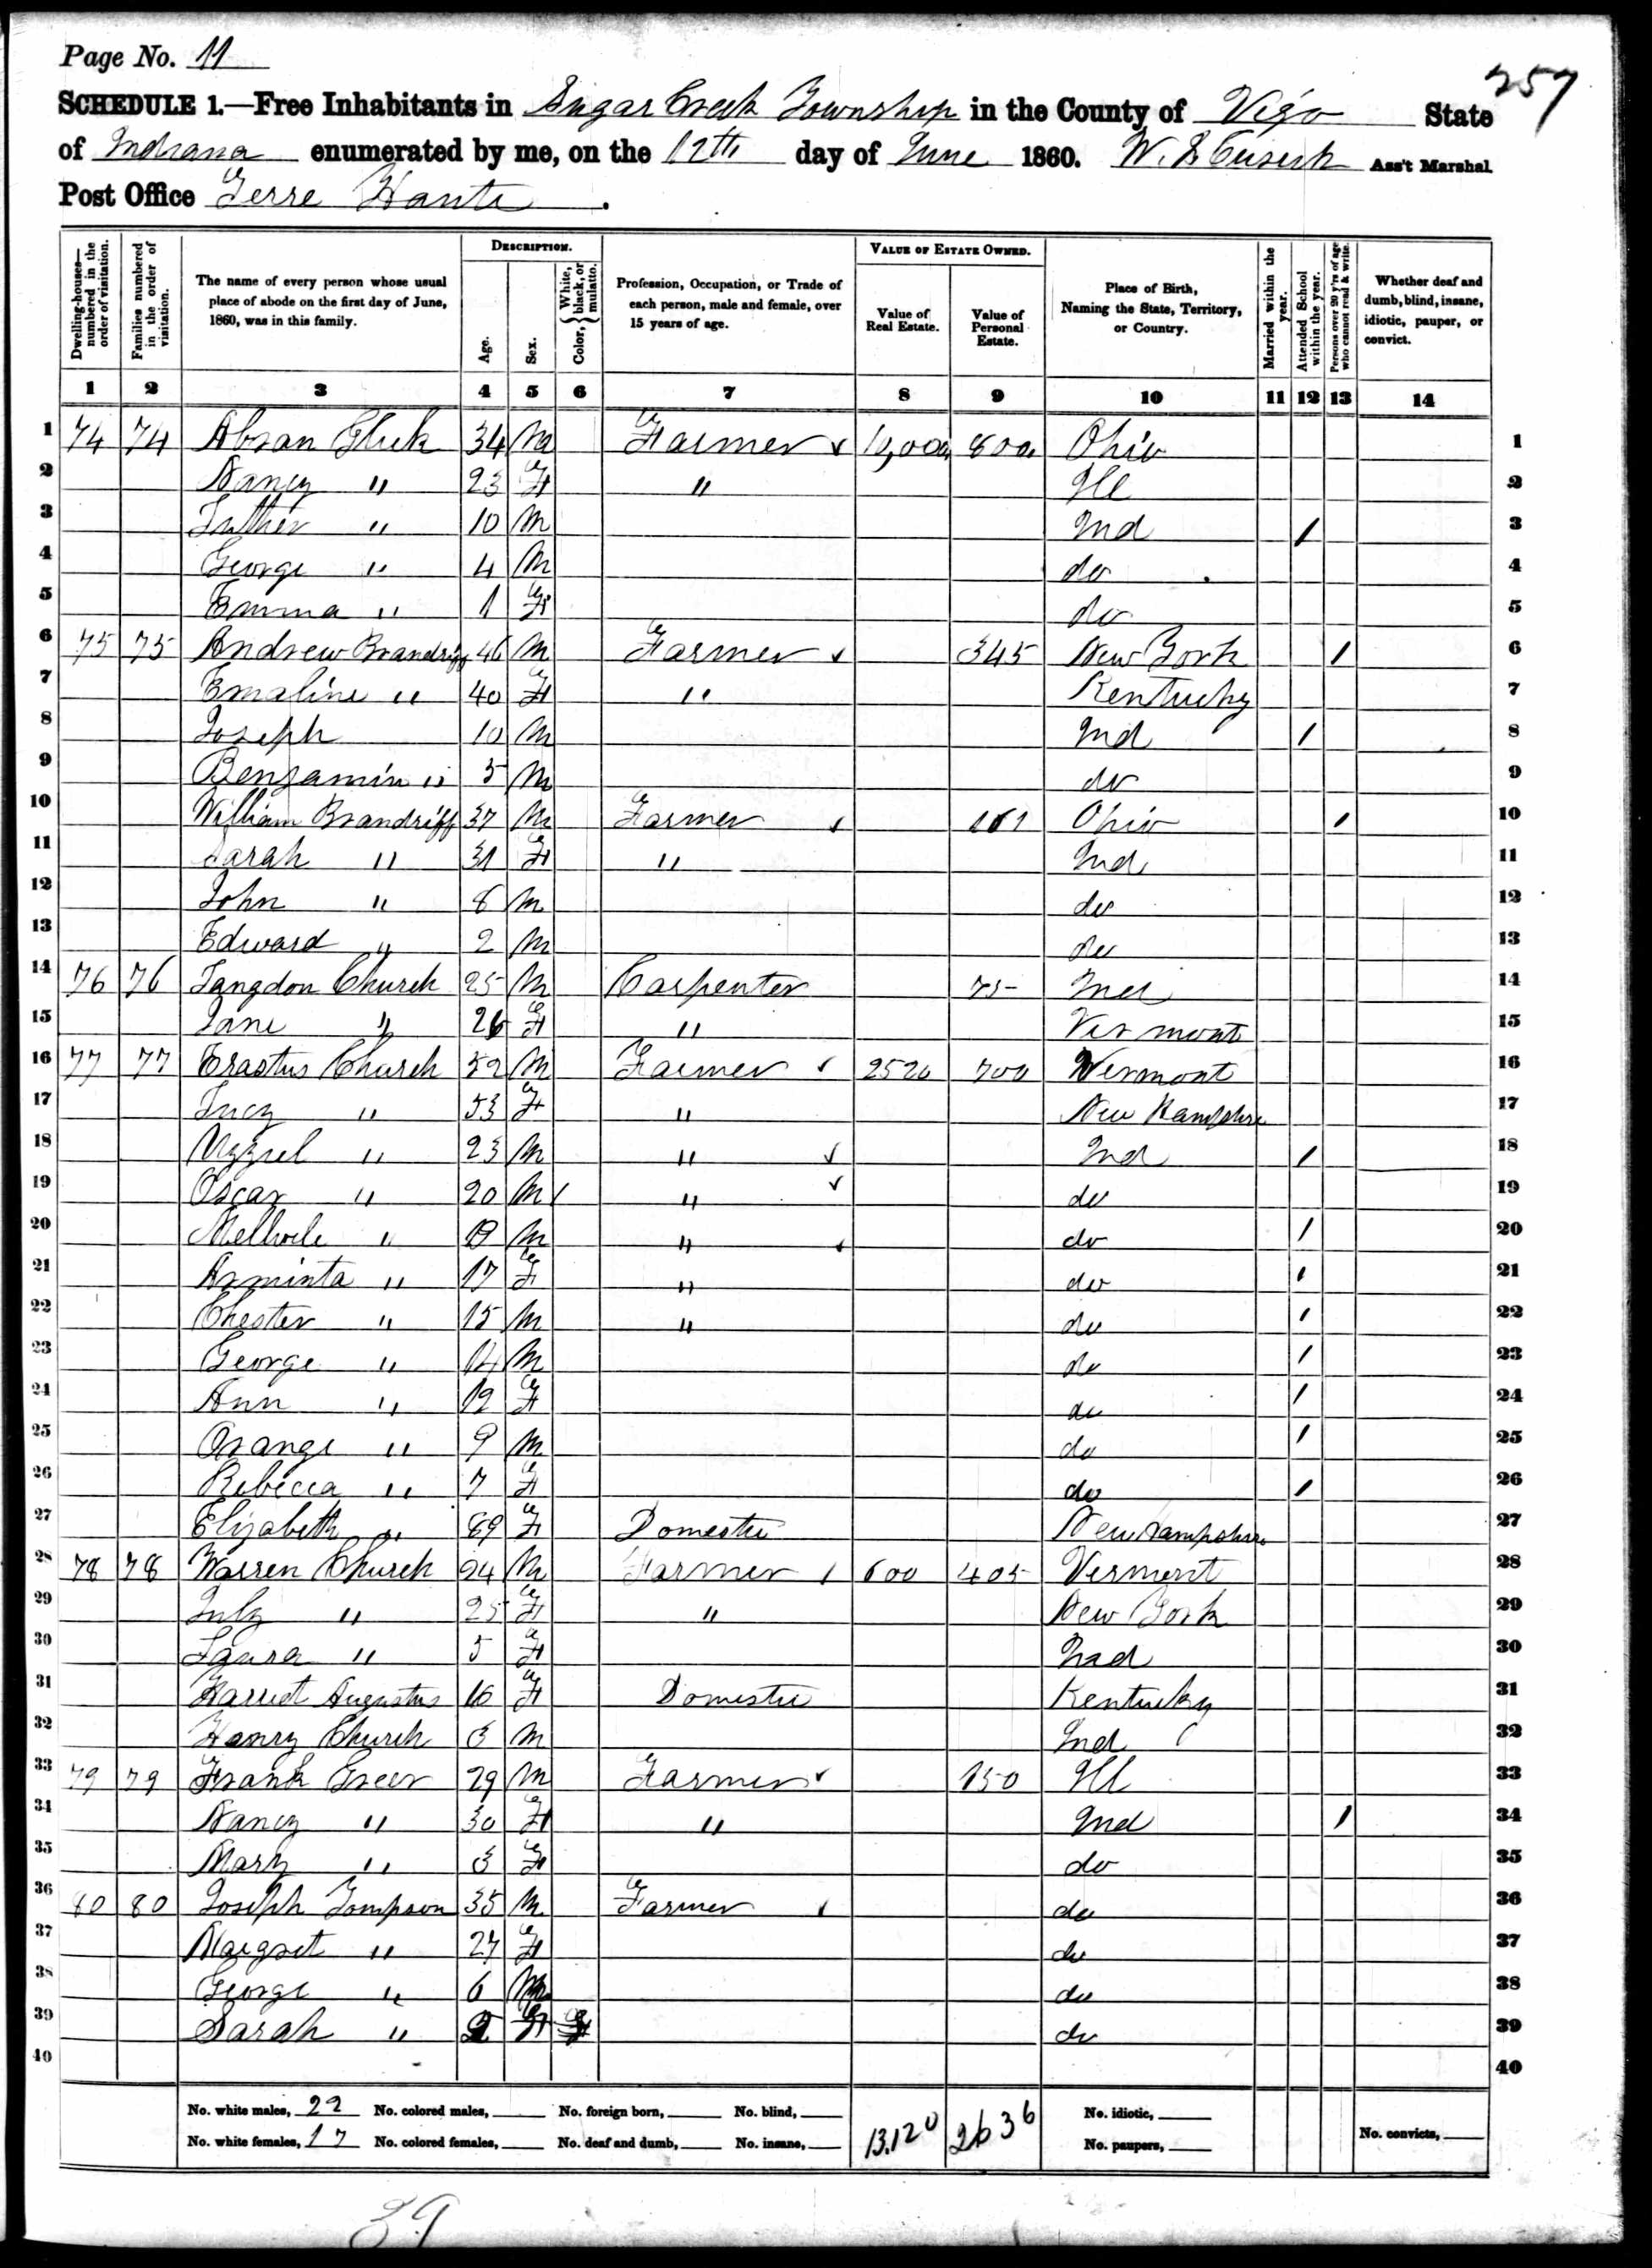 Page No. 11
257
SCHEDULE 1.—Free Inhabitants in Sugar Creek Township in the County of Vigo State
of Indiana enumerated by me, on the 12th day of June 1860. Ass't Marshal.
Post Office Terre Haute.
Dwelling-houses—numbered in the order of visitation. Families numbered in the order of visitation. The name of every person whose usual place of abode on the first day of June, 1860, was in this family. DESCRIPTION. Age. Sex. Color, White, black, or mulatto. Profession, Occupation, or Trade of each person, male and female, over 15 years of age. VALUE OF ESTATE OWNED. Value of Real Estate. Value of Personal Estate. Place of Birth, Naming the State, Territory, or Country. Married within the year. Attended School within the year. Persons over 20 y'rs of age who cannot read & write. Whether deaf and dumb, blind, insane, idiotic, pauper, or convict.
1 2 3 4 5 6 7 8 9 10 11 12 13 14
1 74 74 Abram Gluck 34 M Farmer 10,000 800 Ohio 1
2 Nancy " 23 F " Ill 2
3 Luther " 10 M Ind / 3
4 George " 4 M do 4
5 Emma " 1 F do 5
6 75 75 Andrew Brandriff 46 M Farmer 345 New York / 6
7 Emaline " 40 F " Kentucky 7
8 Joseph 10 M Ind / 8
9 Benjamin " 5 M do 9
10 William Brandriff 37 M Farmer 161 Ohio / 10
11 Sarah " 31 F " Ind 11
12 John " 8 M do 12
13 Edward " 2 M do 13
14 76 76 Langdon Church 25 M Carpenter 75 Ind 14
15 Jane " 26 F " Vermont 15
16 77 77 Erastus Church 52 M Farmer 2520 700 Vermont 16
17 Lucy " 53 F " New Hampshire 17
18 Uzziel " 23 M " Ind / 18
19 Oscar " 20 M / " do 19
20 Mellvile " M " do / 20
21 Arminta " 17 F " do / 21
22 Chester " 15 M " do / 22
23 George " 14 M do / 23
24 Ann " 12 F do / 24
25 Orange " 9 M do / 25
26 Rebecca " 7 F do / 26
27 Elizabeth " 89 F Domestic New Hampshire 27
28 78 78 Warren Church M Farmer 600 405 Vermont 28
29 July " 25 F " New York 29
30 Laura " 5 F Ind 30
31 Harriet Augustus 16 F Domestic Kentucky 31
32 Henry Church 3 M Ind 32
33 79 79 Frank Greer 29 M Farmer 150 Ill 33
34 Nancy " 30 F " Ind / 34
35 Mary " 3 F do 35
36 80 80 Joseph Tompson 35 M Farmer do 36
37 Margret " 27 F do 37
38 George " 6 M do 38
39 Sarah " 2 F do 39
40 40
No. white males, 22 No. colored males, No. foreign born, No. blind, 13.120 2636 No. idiotic,
No. white females, 17 No. colored females, No. deaf and dumb, No. insane, No. paupers, No. convicts,
39